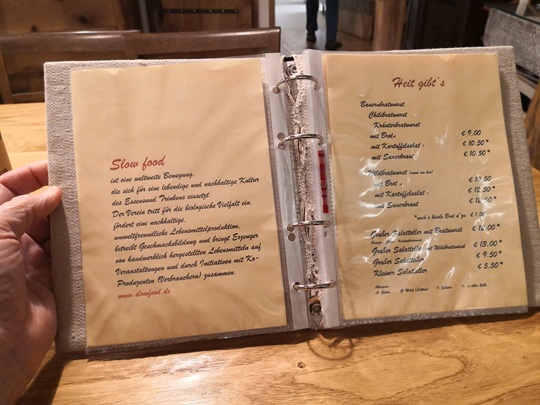 Slow food
ist eine weltweite Bewegung,
die sich für eine lebendige und nachhaltige Kultur
des Essensund Trinkens einsetzt.
Der Verein tritt für die biologische Vielfalt ein,
fördert eine nachhaltige,
umweltfreundliche Lebensmittelproduktion,
betreibt Geschmacksbildung und bringt Erzeuger
von handwerklich hergestellten Lebensmitteln auf
Veranstaltungen und durch Initiativen mit Ko-
Produzenten (Verbrauchern) zusammen.
www.slowfood.de
Heit gibt's
Bauernbratwurst
Chilibratwurst
Kräuterbratwurst
mit Brot € 9.00
mit Kartoffelsalat € 10.50*
mit Sauerkraut € 10.50*
Wildbratwurst
mit Brot € 10.50
mit Kartoffelsalat
mit Sauerkraut
Brot € 1.00
Großer Salatteller mit Bratwurst € 12.00*
Großer Salatteller mit Wildbratwurst € 13.00*
Großer Salatteller € 9.50*
Kleiner Salatteller € 5.50*